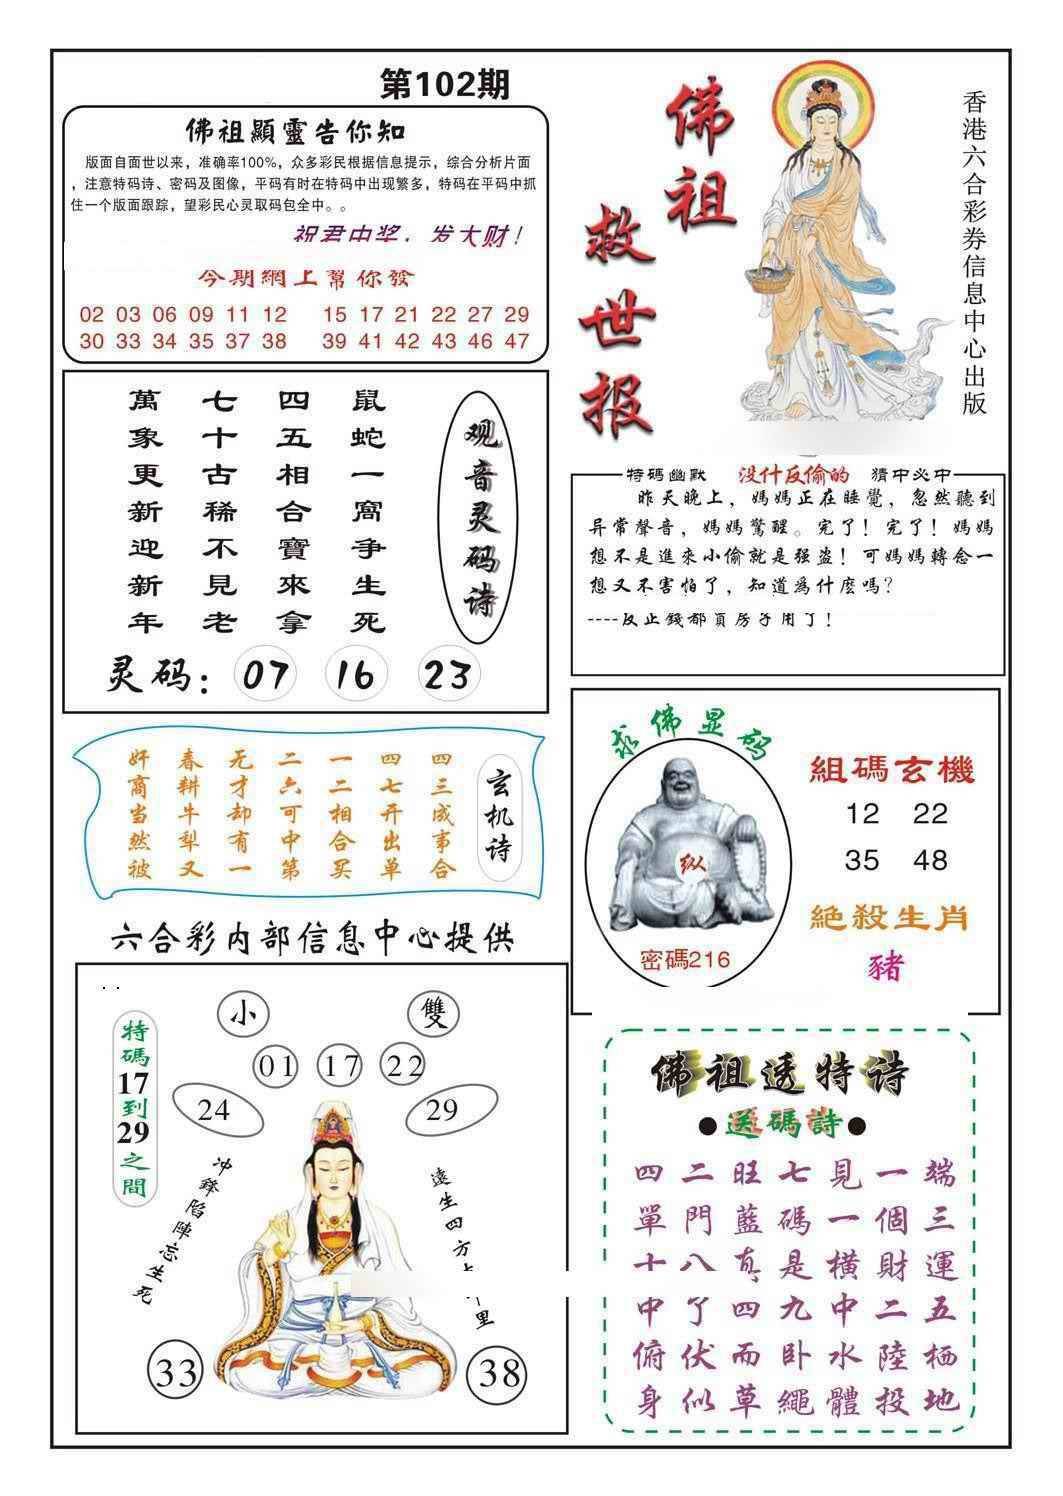 第102期
佛祖顯靈告你知
版面自面世以来，准确率100%，众多彩民根据信息提示，综合分析片面
，注意特码诗、密码及图像，平码有时在特码中出现繁多，特码在平码中抓
住一个版面跟踪，望彩民心灵取码包全中。。
祝君中奖，发大财！
今期網上幫你發
02 03 06 09 11 12 15 17 21 22 27 29
30 33 34 35 37 38 39 41 42 43 46 47
佛祖
救世报
香港六合彩券信息中心出版
观音灵码诗
鼠蛇一窩争生死
四五相合寶來拿
七十古稀不見老
萬象更新迎新年
灵码：07 16 23
特碼幽默 没什反偷的 猜中必中
昨天晚上，媽媽正在睡覺，忽然聽到
异常聲音，媽媽驚醒。完了！完了！媽媽
想不是進來小偷就是强盗！可媽媽轉念一
想又不害怕了，知道為什麼嗎？
----反正錢都買房子用了！
玄机诗
四三成事合
四七开出单
一二相合买
二六可中第
无才却有一
春耕牛犁又
奸商当然被
求佛显码
纵
密碼216
組碼玄機
12 22
35 48
絕殺生肖
豬
六合彩内部信息中心提供
小 雙
特碼17到29之間
01 17 22
24 29
冲鋒陷陣忘生死
遠生四方
里
33 38
佛祖透特诗
●送碼詩●
端三運五栖地
一個財二陸投
見一横中水體
七碼是九卧繩
旺藍真四而草
二門八了伏似
四單十中俯身